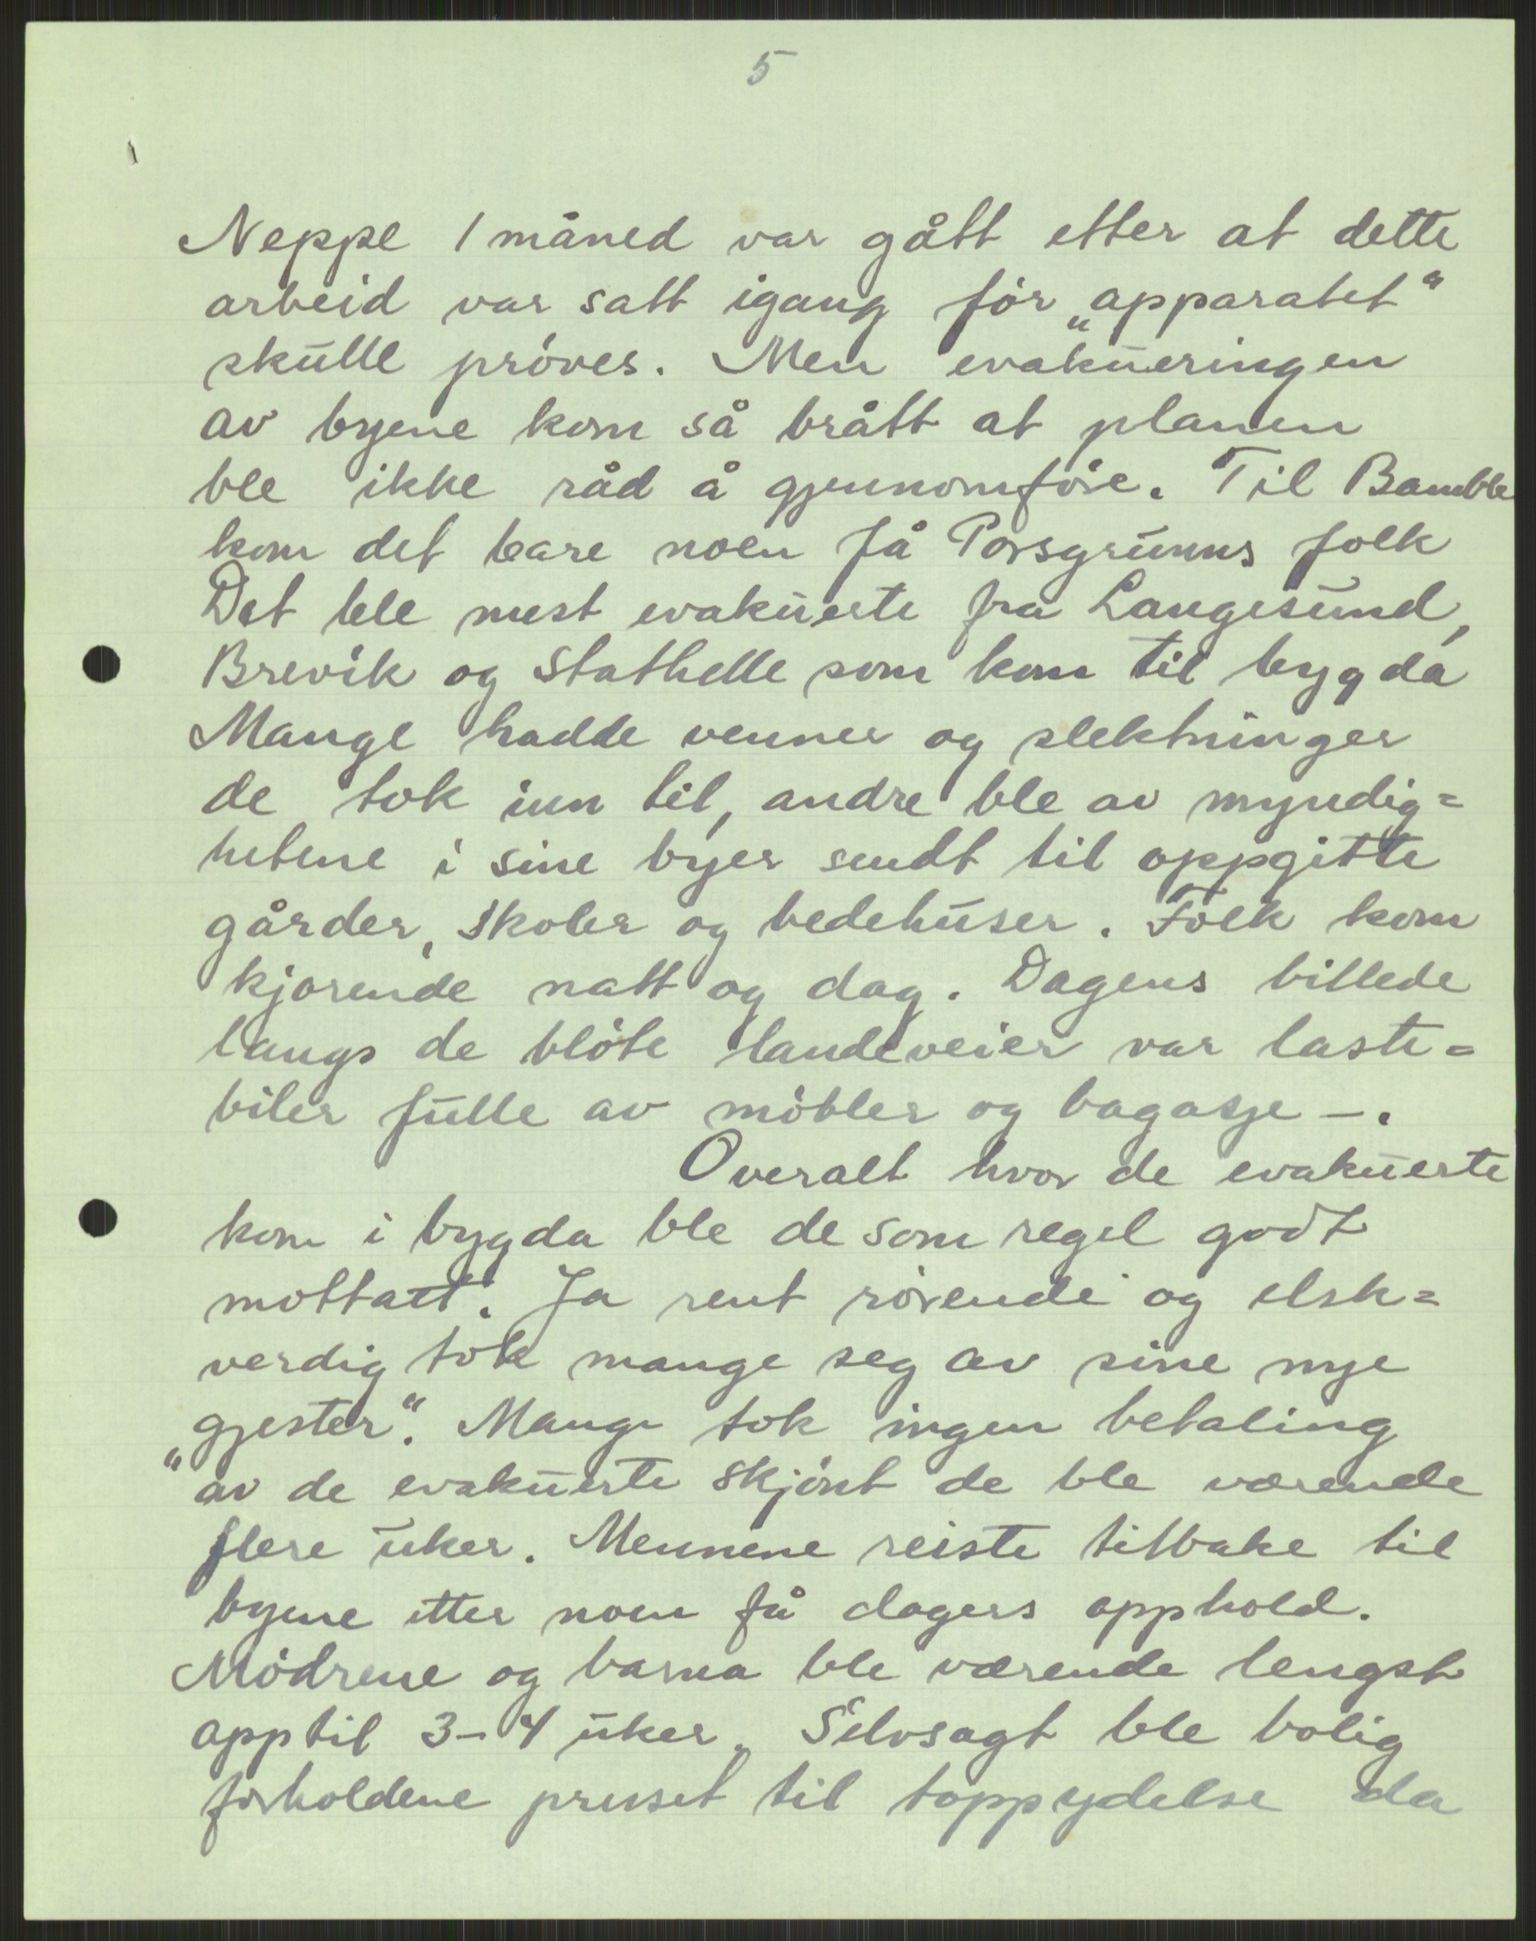 5
Neppe 1 måned var gått etter at dette
arbeid var satt igang før „apparatet“
skulle prøves. Men evakueringen
av byene kom så brått at planen
ble ikke råd å gjennomføre. Til Bamble
kom det bare noen få Porsgrunns folk
Det ble mest evakuerte fra Langesund,
Brevik og Stathelle som kom til bygda
Mange hadde venner og slektninger
de tok inn til, andre ble av myndig=
hetene i sine byer sendt til oppgitte
gårder, skoler og bedehuser. Folk kom
kjørende natt og dag. Dagens billede
langs de bløte landeveier var laste=
biler fulle av møbler og bagasje –.
Overalt hvor de evakuerte
kom i bygda ble de som regel godt
mottatt. Ja rent rørende og elsk=
verdig tok mange seg av sine nye
„gjester“. Mange tok ingen betaling
av de evakuerte skjønt de ble værende
flere uker. Mennene reiste tilbake til
byene etter noen få dagers opphold.
Mødrene og barna ble værende lengst
opptil 3–4 uker. Selvsagt ble bolig
forholdene presset til toppydelse da